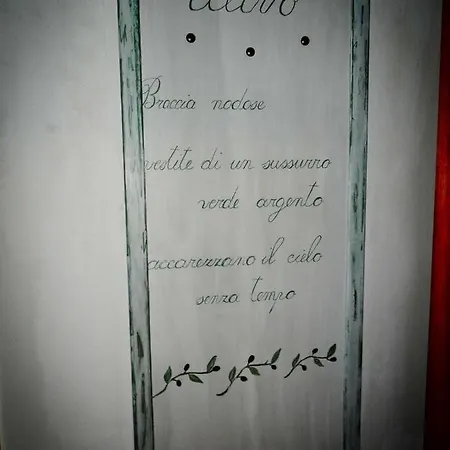 Braccia nodose
vestite di un sussurro
verde argento
accarezzano il cielo
senza tempo